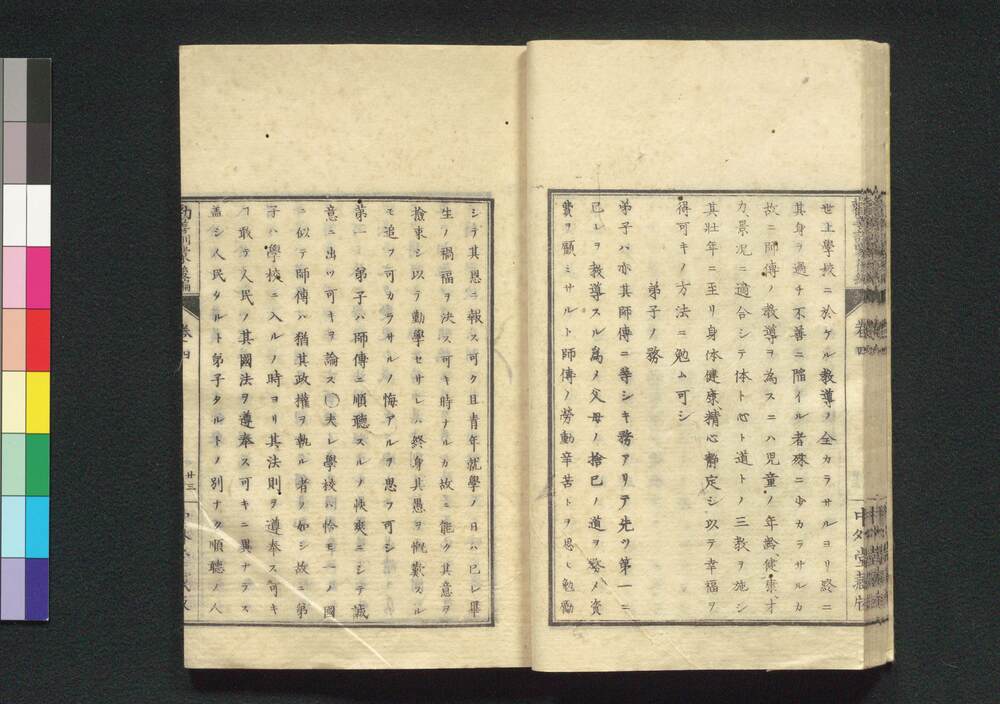 世上學校ニ於ケル教導ノ全カラサルヨリ終ニ
其身ヲ過チ不善ニ陷イル者殊ニ少カラサルカ
故ニ師傅ノ教導ヲ為スニハ児童ノ年齡、健康、才
力、景況ニ適合シテ体ト心ト道トノ三教ヲ施シ
其壮年ニ至リ身体健康精心靜定シ以テ幸福ヲ
得可キノ方法ニ勉ム可シ
弟子ノ務
弟子ハ亦其師傅ニ等シキ務アリテ先ツ第一ニ
已レヲ教導スル為メ父母ノ捨已ノ道ヲ發メ資
費ヲ顧ミサルト師傅ノ勞動辛苦トヲ思ヒ勉勵
シテ其恩ニ報ス可ク且青年就學ノ日ハ已レ畢
生ノ禍福ヲ決ス可キ時ナルカ故ニ能ク其意ヲ
撿束シ以テ勤學セサレハ終身其愚ヲ慨歎スル
モ追フ可カラサルノ悔アルヲ思フ可シ
第一 弟子ハ師傅ニ順聽スルノ快爽ニシテ誠
意ニ出ツ可キヲ論ス○夫レ學校ハ恰モ一ノ國
ニ似テ師傅ハ猶其政權ヲ執ル者ノ如シ故ニ弟
子ハ學校ニ入ルノ時ヨリ其法則ヲ遵奉ス可キ
ヿ敢テ人民ノ其國法ヲ遵奉ス可キニ異ナラス
盖シ人民タルト弟子タルトノ別ナク順聽ノ人
卷四
廿三
中外堂藏版